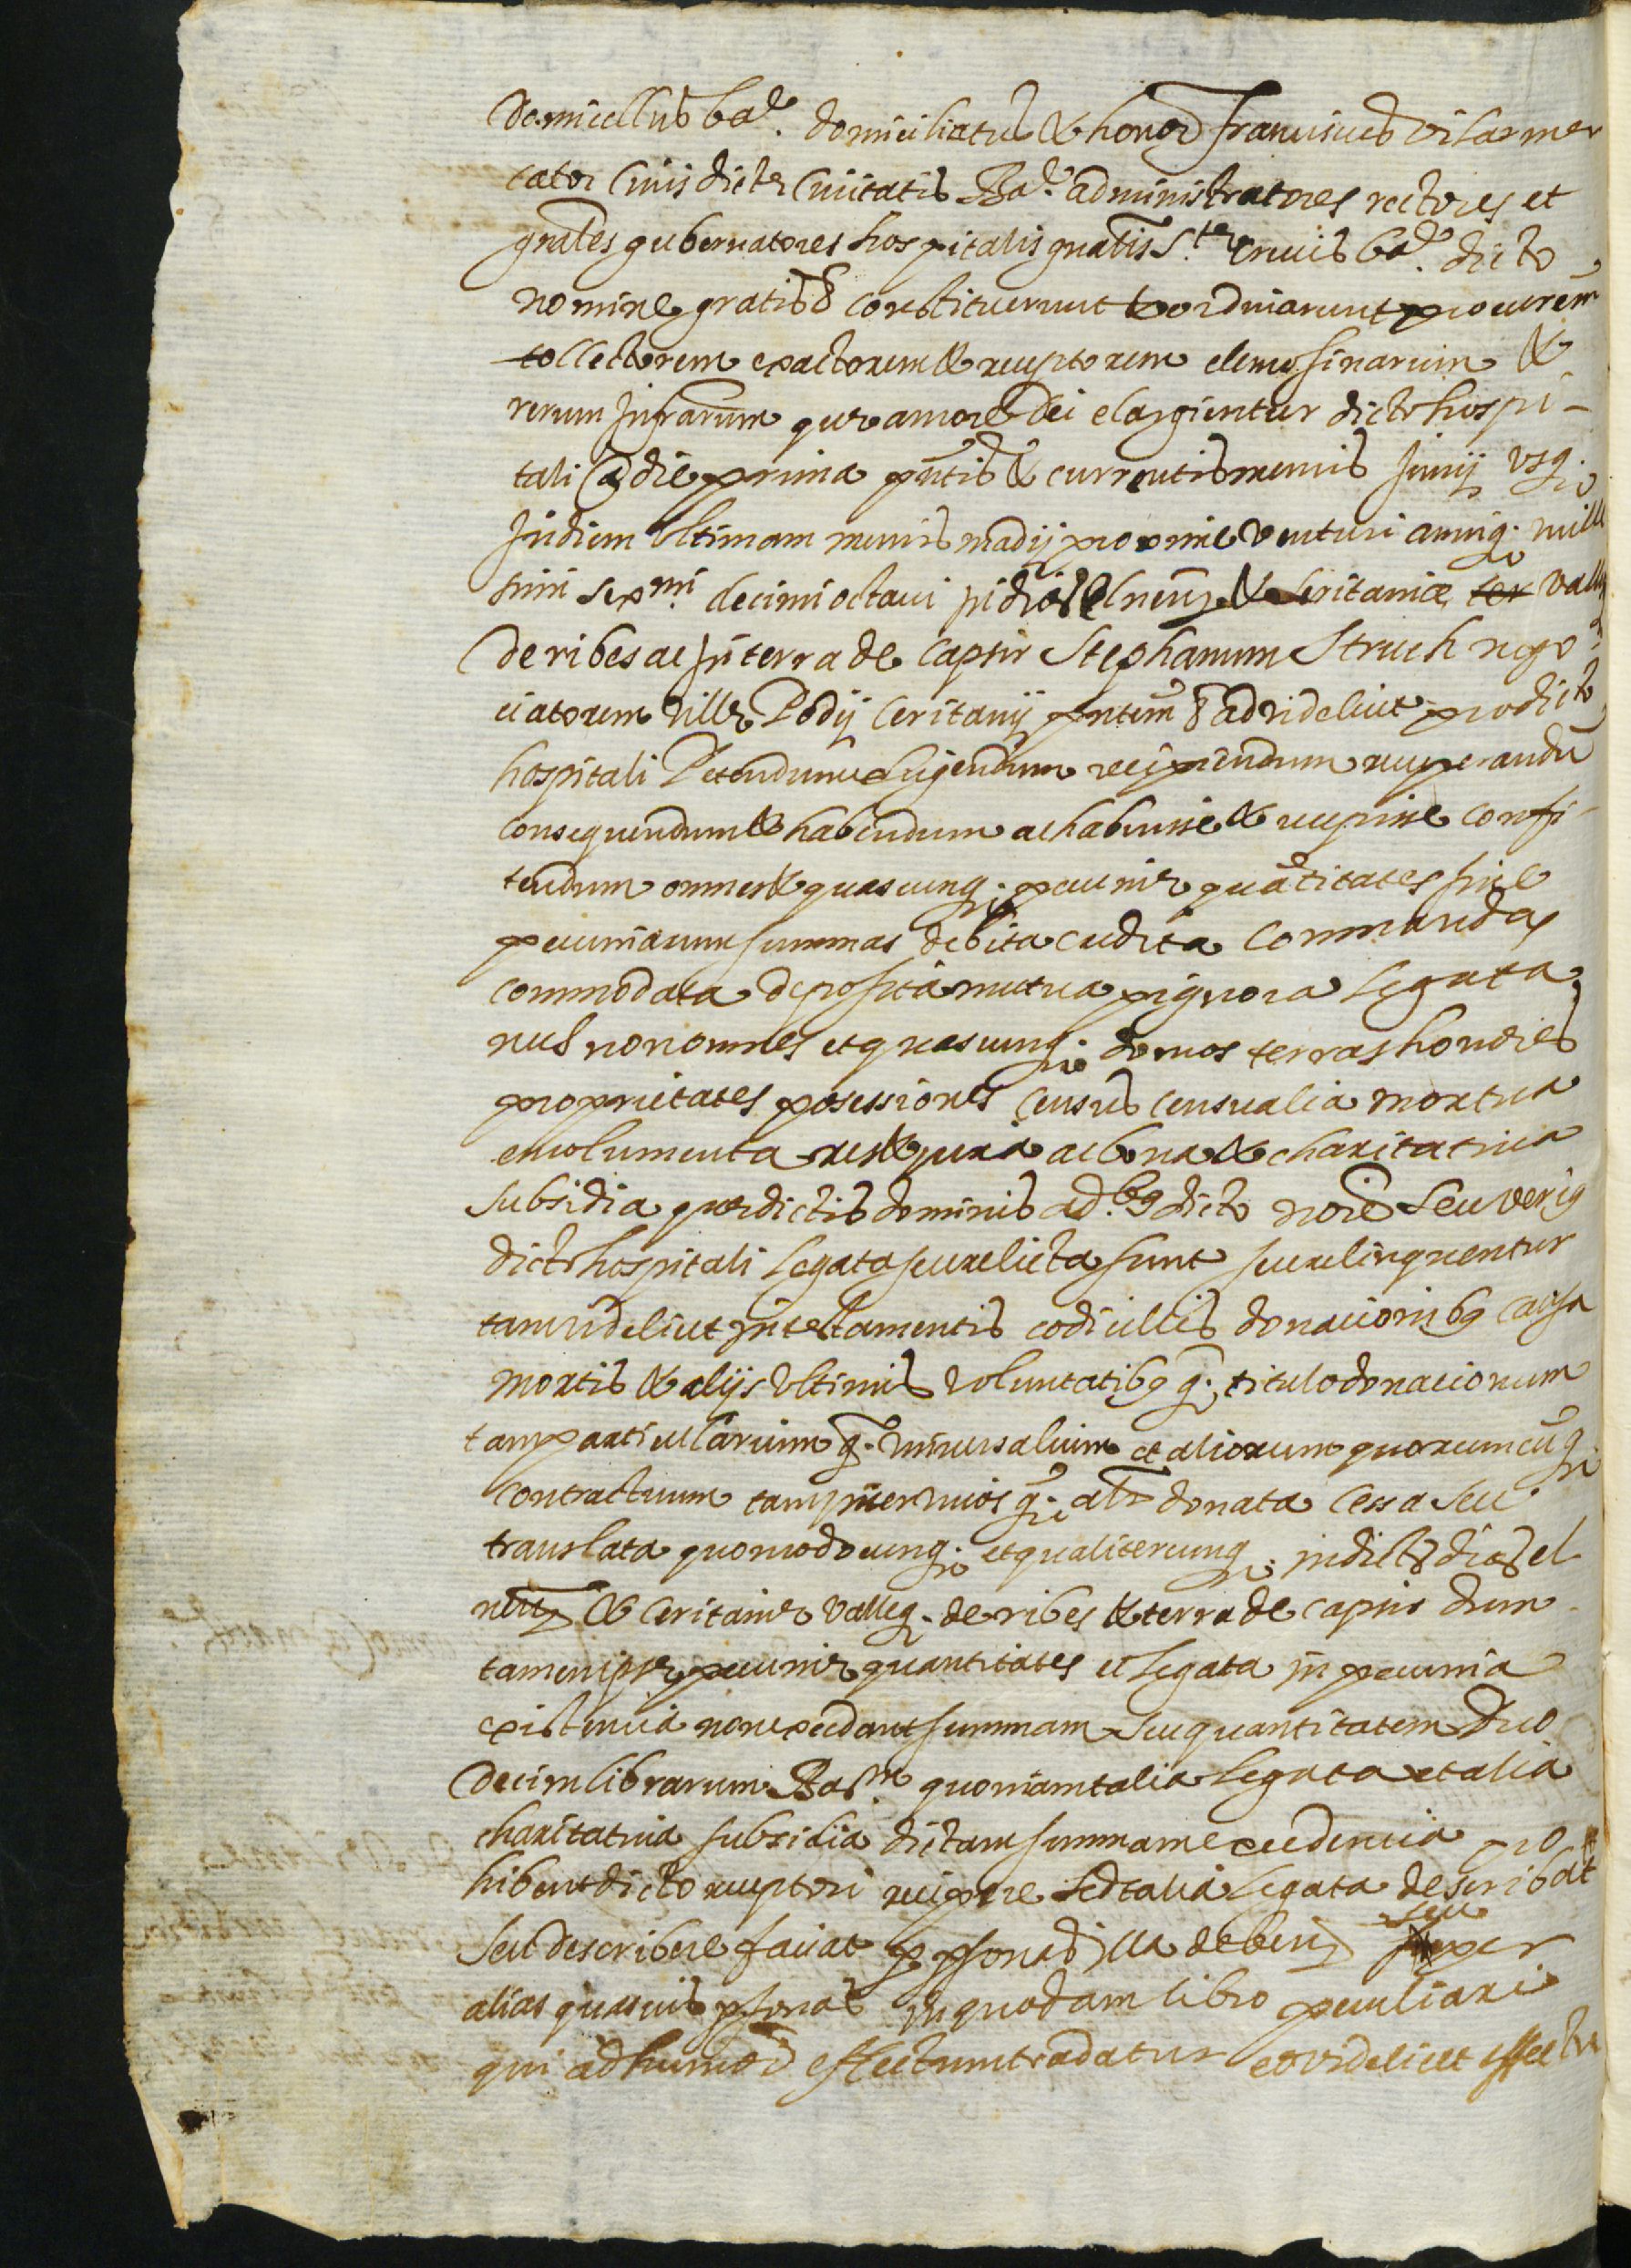 Domicellus bar. domiciliatus & honor. franciscus vilar mer
cator Civis dictæ Civitatis Bar. administratores rectores et
gnales gubernatores hospitalis gnalis S.tæ Crucis bar. dicto
nomine gratis & constituerunt & ordinarunt procurem
collectorem exactorem & receptorem elemosinarum &
rerum Infrarum quæ amore Dei elargientur dicto hospi-
tali @ die prima pntis & currentis mensis Junij usq.
In diem ultimam mensis madij proxime venturi anniq. mille
simi sexmi decimi octavi in diocs Elnen & Ceritaniæ valle
de ribes ac in terra de Capsir Stephanum Struch nego
ciatorem villæ Podij Ceritanij pntem & ad videlicet pro dicto
hospitali Petendum exhigendum recipiendum recuperandu
consequendum & habendum ac habuisse & recepisse confi-
tendum omnes & quascunq. pecuniæ quatitates sive
pecuniarum summas debita credita Commandas
commodata deposita mutua pignora legata
nec non omnes et quascunq. domos terras honores
proprietates posessiones Census Censualia mortua
emolumenta res & jura ac bona & charitativa
Subsidia quæ dictis dominis ad.bq dicto noie seu veriq
dicto hospitali legata seu relicta sunt seu relinquentur
tam videlicet in testamentis codicillis donacionibq causa
mortis & alijs ultimis voluntatibq q. titulo donacionum
tam particularium q. universalium et aliorum quorumcuq.
contractuum tam inter vivos q. alr donata Cessa seu
translata quomodocunq. et qualitercunq. in dictis diocs el
nen & Ceritaniæ valleq. de ribes & terra de capsir dum
tamen ipsæ pecuniæ quantitates et legata in pecunia
existencia non excedant summam seu quantitatem duo
decim librarum Barne quoniam talia legata et alia
charitativa subsidia dictam summam excedencia pro
hibent dicto receptori recipere sed talia legata describat
seu describere faciat p psonas illa deben seu per
alias quasvis psonas in quodam libro peculiari
qui ad humoi effectum tradatur eo videlicet effectu